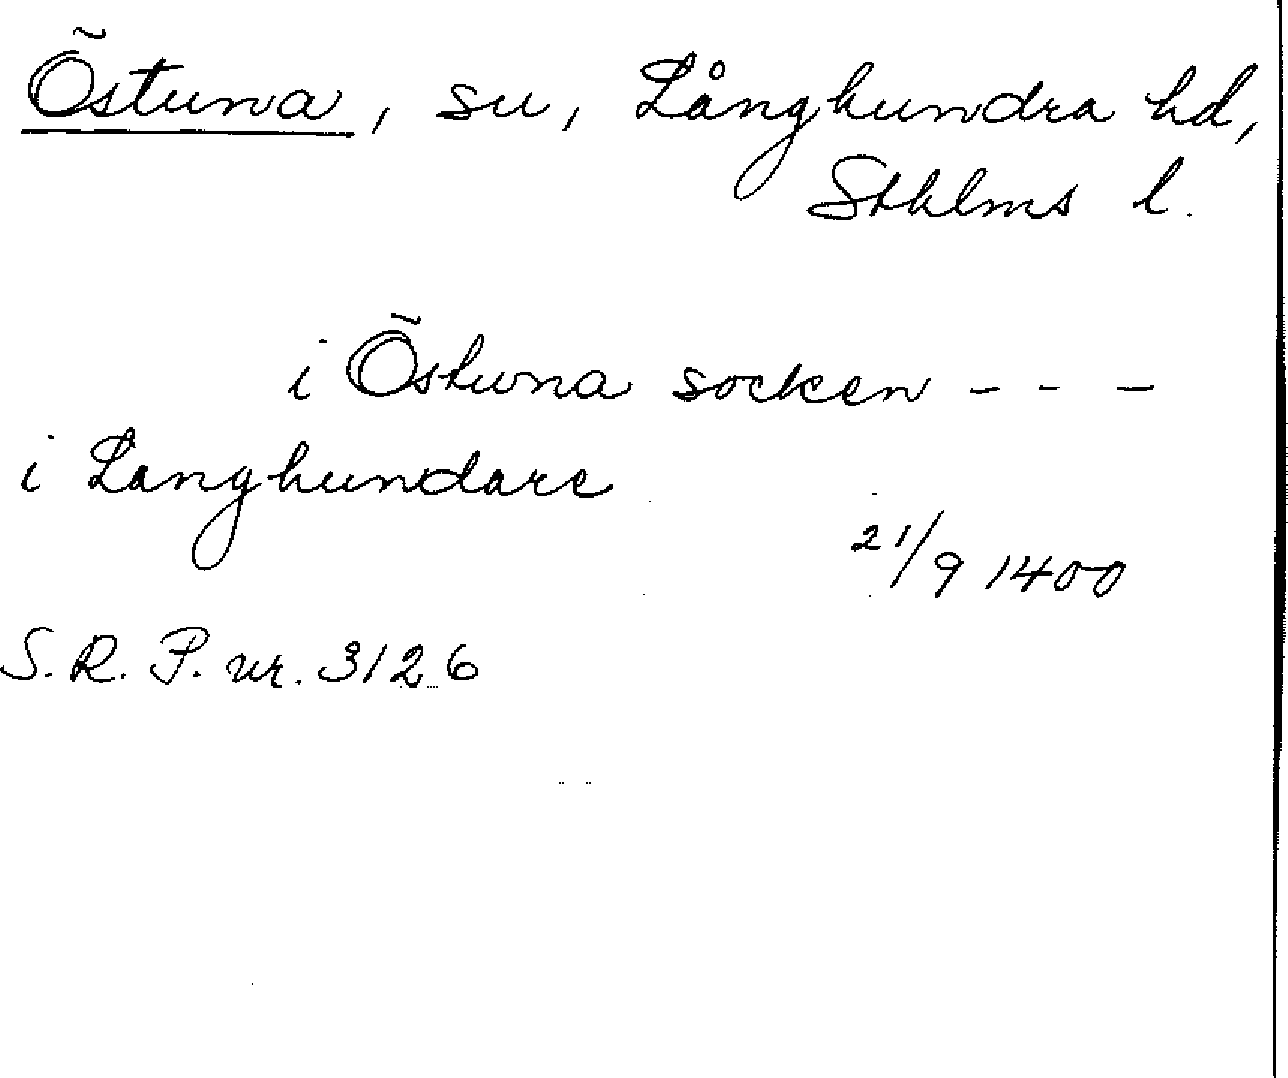 Östuna, su, Långhundra hd,
Sthlms l.
i Östuna socken - - -
i Langhundare
21/9 1400
S. R. P. nr. 3126